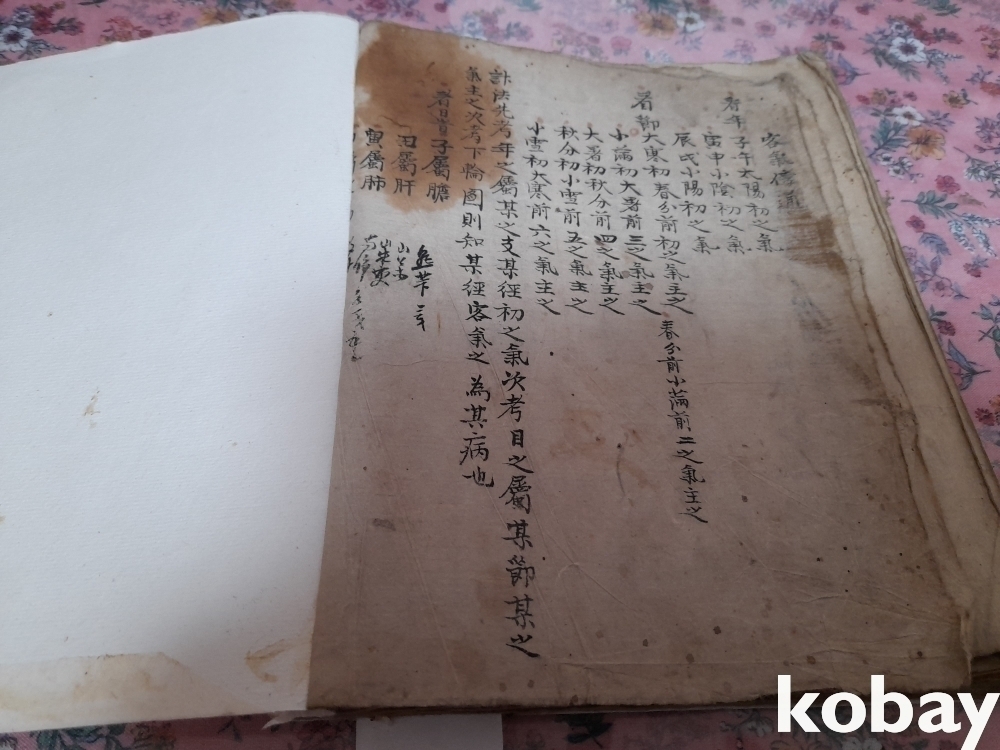 客氣傳通
看年 子午太陽初之氣
寅申小陰初之氣
辰戌小陽初之氣
看節 大寒初春分前初之氣主之
春分前小滿前二之氣主之
小滿初大暑前三之氣主之
大暑初秋分前四之氣主之
秋分初小雪前五之氣主之
小雪初大寒前六之氣主之
計法先考年之屬某之支某徑初之氣次考日之屬某節某之
氣主之次考下輪圖則知某徑客氣之為其病也
看日 子屬膽
丑屬肝
寅屬肺
kobay